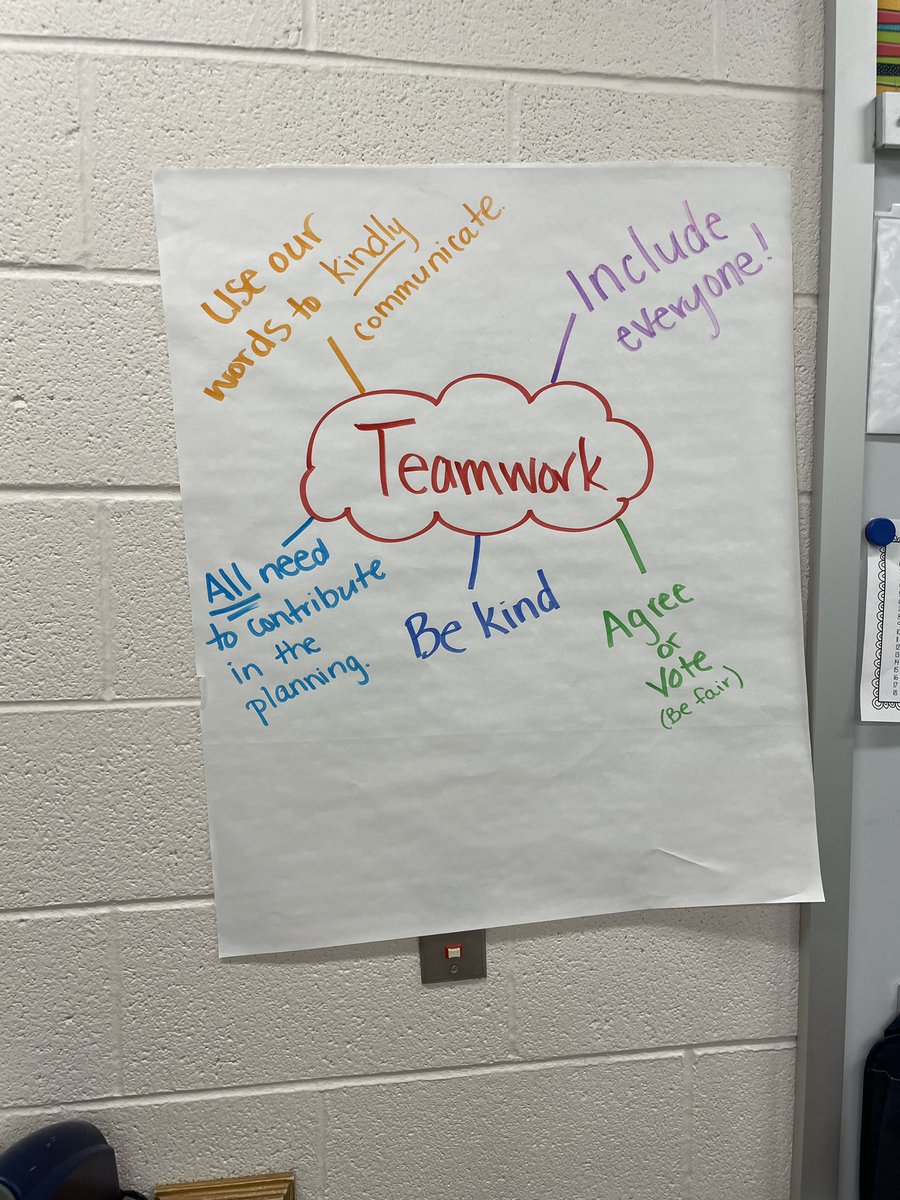 Use our
words to kindly
communicate.
Include
everyone!
Teamwork
All need
to contribute
in the
planning.
Be kind
Agree
or
Vote
(Be fair)